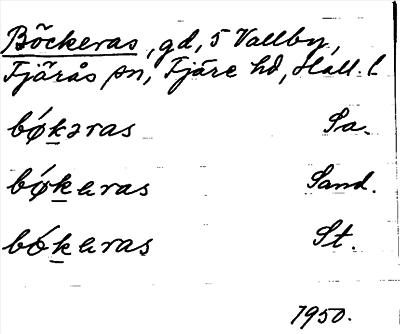 Böckeras, gd, 5 Vallby,
Fjärås sn, Fjäre hd, Hall. l
bǿkəras Sa.
bǿkeras Sand.
bǿkeras St.
1950.